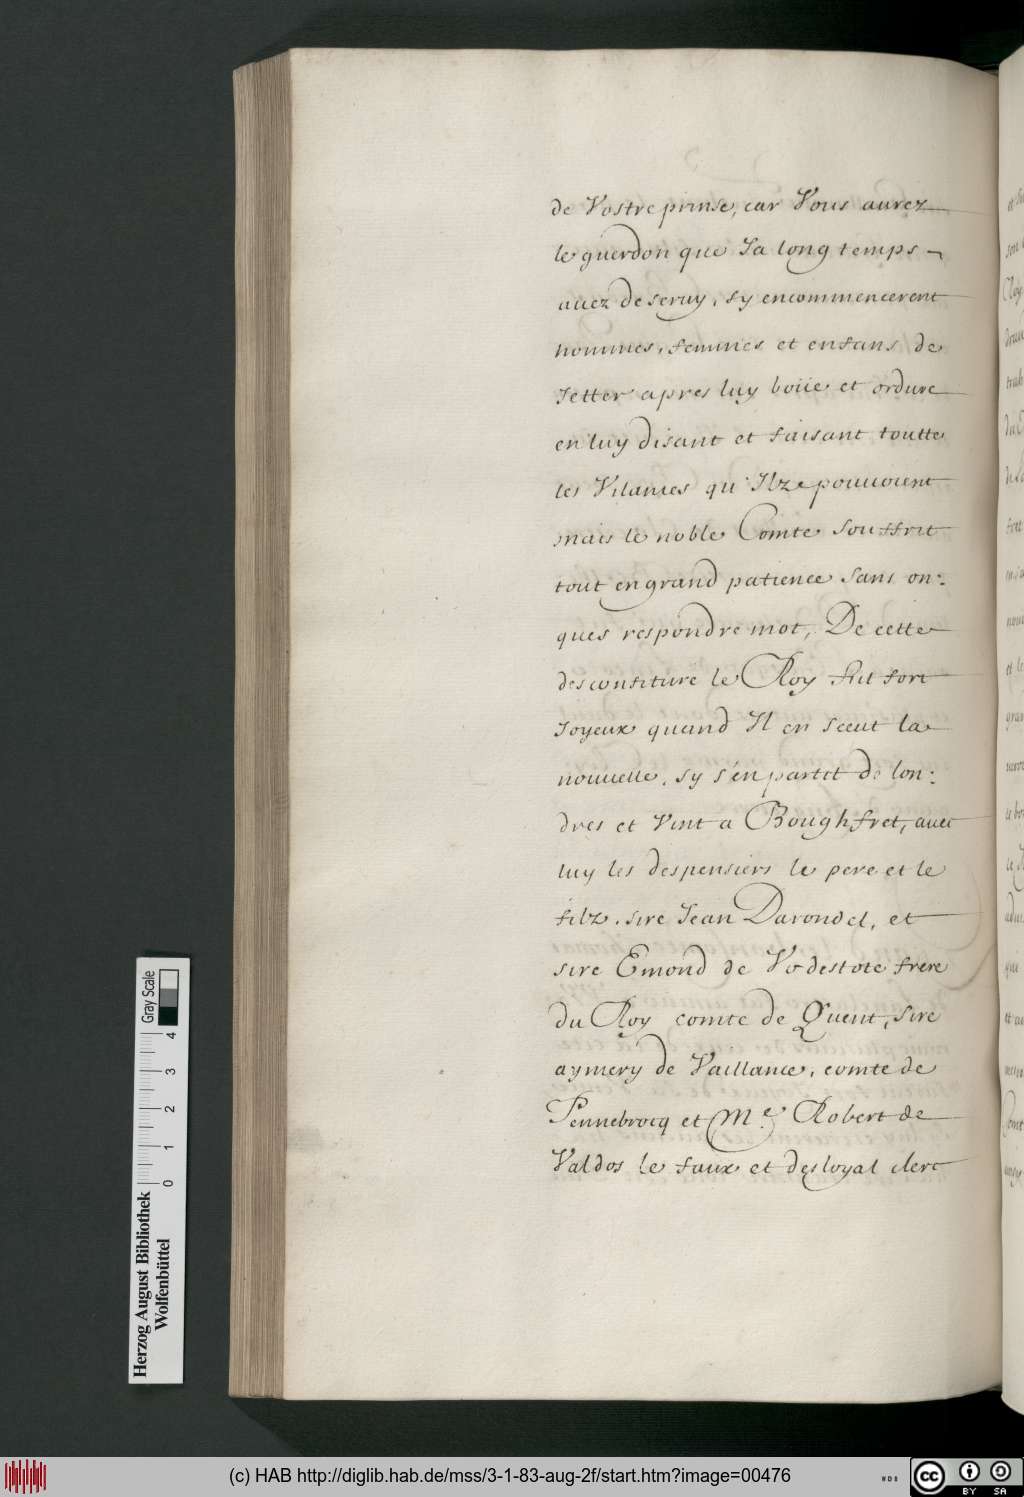 de Vostre prinse, car Vous aurez
le guerdon que Ja long temps
auez deseruy, sy encommencerent
hommes, femmes et enfans de
Jetter apres luy boüe et ordure
en luy disant et faisant toutte
les Vilanies qu'Ilz pouuoient
mais le noble Comte souffrit
tout en grand patience sans on:
ques respondre mot, De cette
desconfiture le Roy fut fort
Joyeux quand Il en sceut la
nouuelle, sy s'en partit de lon:
dres et Vint a Boughfret, auec
luy les despensiers le pere et le
filz, sire Jean Darondel, et
sire Emond de Vodestote frere
du Roy comte de Quent, sire
aymery de Vaillance, comte de
Pennebrocq et Me. Robert de
Valdos le faux et desloyal clerc
Herzog August Bibliothek
Wolfenbüttel
0 1 2 3 4
Gray Scale
(c) HAB http://diglib.hab.de/mss/3-1-83-aug-2f/start.htm?image=00476
cc BY SA